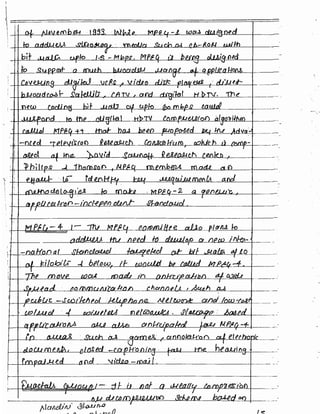 of November 1993. While MPEG-1 was designed
to address storage media such as CD-ROM with
bit upto 1.5 - Mbps. MPEG is being designed
to support a much broader range of applications
covering digital VCRs, video disk players, direct
broadcast satellite, CATV, and digital HDTV. The
new coding bit of upto 60 mbps could
respond to the digital HDTV compression algorithm
called MPEG ++ that has been proposed by the Adva-
-nced Television Research Consortium, which is comp-
of the David Sarnoff Research center,
Philips & Thomson, MPEG members made an
to identify key requirements and
methodologies to make MPEG-2 a generic,
application-independent standard.
MPEG-4 :- The MPEG committee also plans to
address the need to develop a new inter-
-national standard targeted at bit rates of 10
of kilobits & below, it would be called MPEG-4.
The move was made in anticipation of wide
spread communication channels, such as
public-switched telephone network and low-cost
wireless networks. based
applications are also anticipated for MPEG-4
in areas such as games, annotation of electronic
documents, closed-captioning for the hearing
impaired and video-mail.
:- It is not a really compression
scheme based on
Nandini Sharma